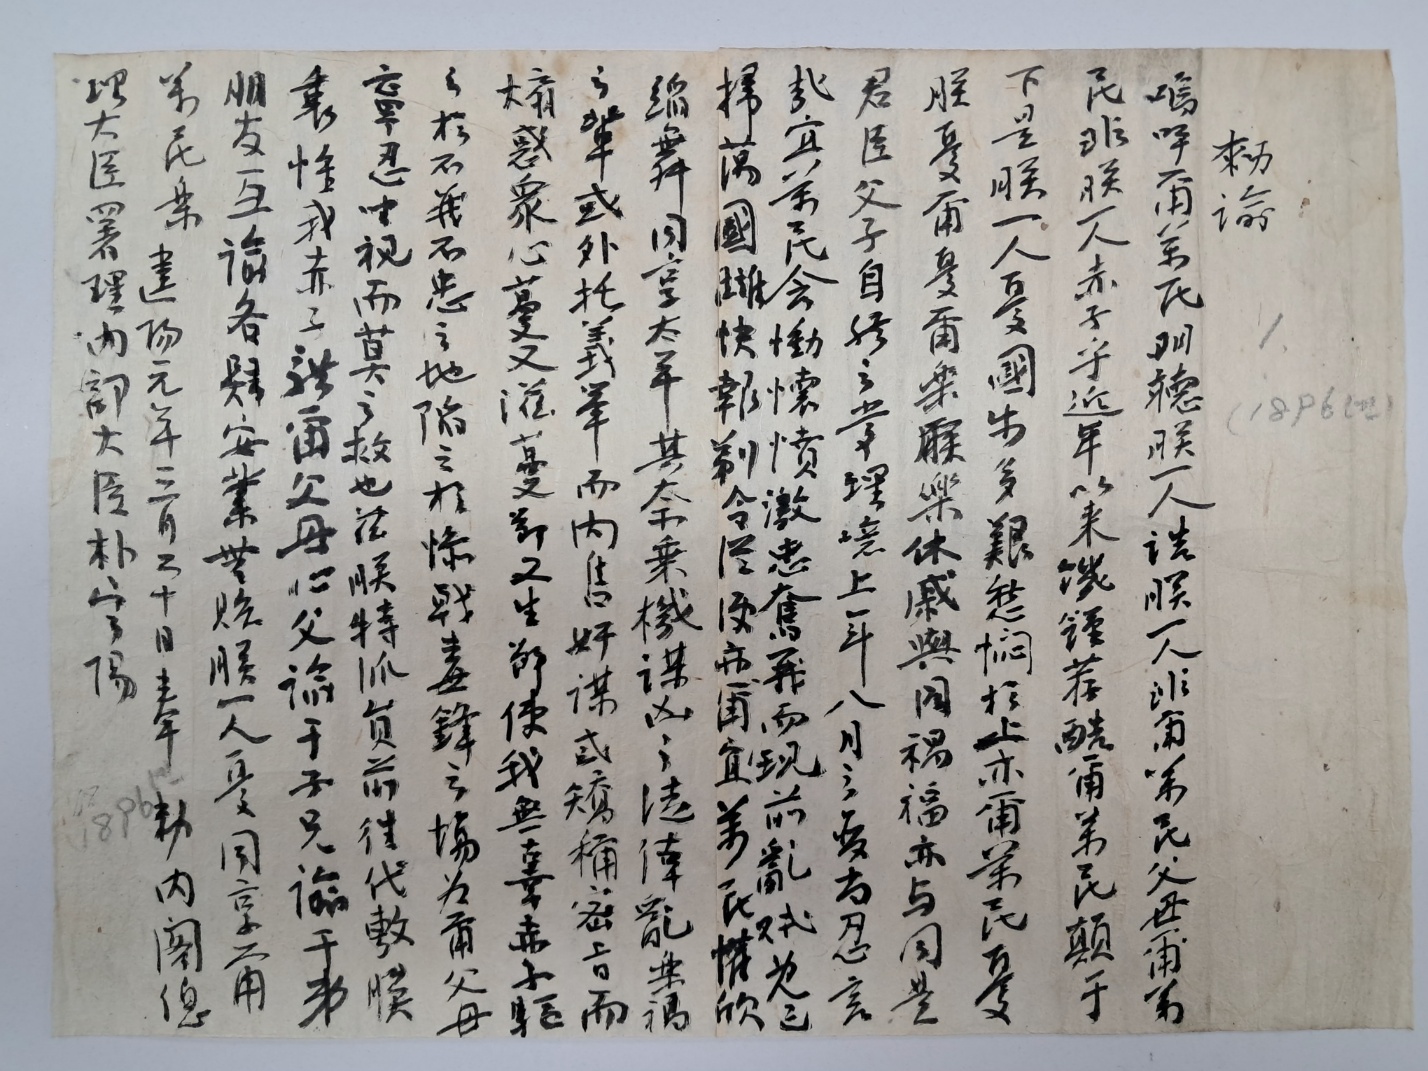 勅諭
嗚呼爾萬民明聽朕一人誥朕一人非爾萬民父母爾萬
民非朕一人赤子乎近年以来饑饉荐酷爾萬民顛于
下是朕一人憂國步多艱愁悶於上亦爾萬民憂
朕憂爾憂爾樂朕樂休戚與同禍福亦与同是
君臣父子自然之常理噫上年八月之變尚忍言
哉宜萬民含慟懷憤激忠奮義而現前亂賊既已
掃蕩國讎快報剃令從便亦爾宜萬民懽欣
蹈舞同享太平其奈乗機謀凶之徒倖亂樂禍
之輩或外托義挙而内售奸謀或矯稱密旨而
煽惑衆心蔓又滋蔓節又生節使我無辜赤子驅
之於不義不忠之地陷之於慘戮毒鋒之場為爾父母
寧忍坐視而莫之救也茲朕特派員前往代敷朕
衷惟我赤子體爾父母心父諭于子兄諭于弟
朋友互諭各歸安業無貽朕一人憂同享爾
萬民樂 建陽元年三月二十日奉 勅 内閣總
理大臣署理内部大臣朴定陽
1.
(1896년)
1896년